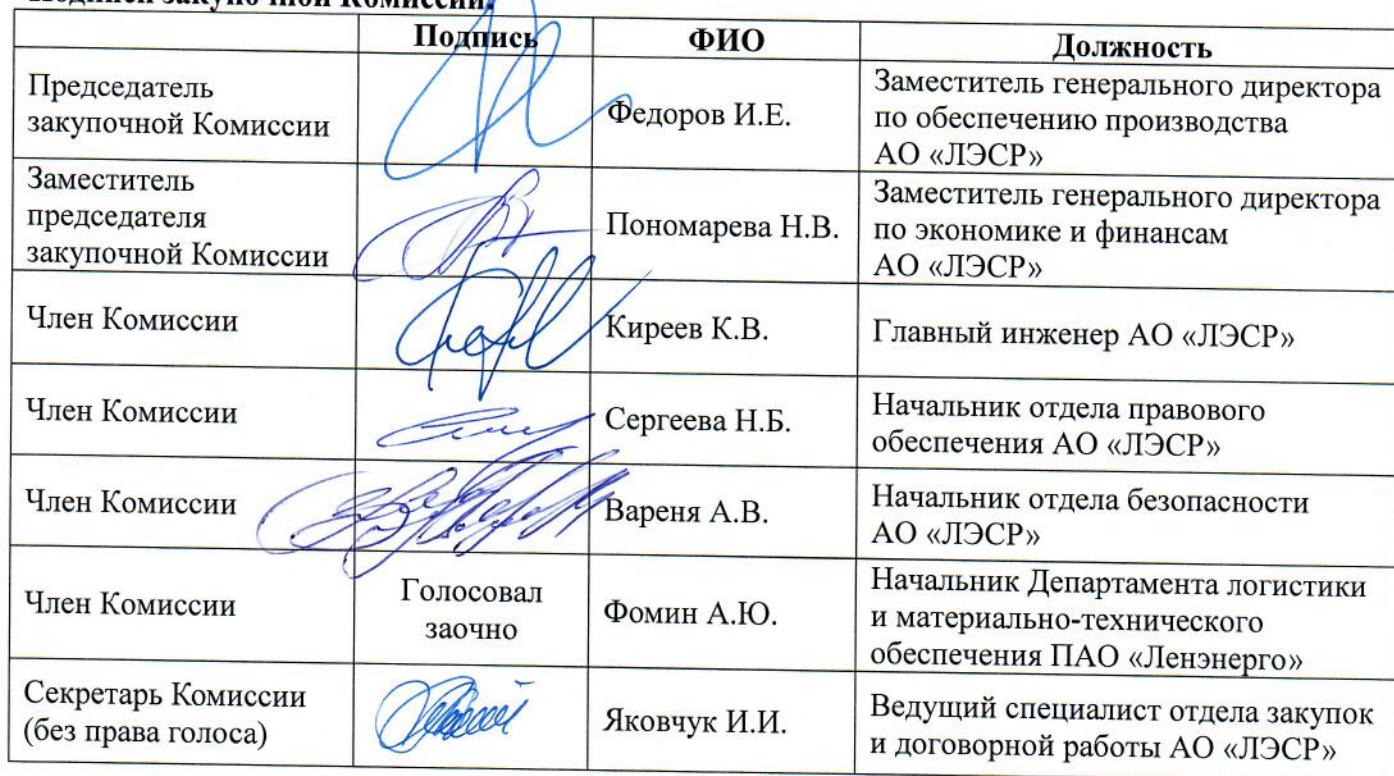 Подписи закупочной Комиссии:
Подпись ФИО Должность
Председатель
закупочной Комиссии
Федоров И.Е.
Заместитель генерального директора
по обеспечению производства
АО «ЛЭСР»
Заместитель
председателя
закупочной Комиссии
Пономарева Н.В.
Заместитель генерального директора
по экономике и финансам
АО «ЛЭСР»
Член Комиссии
Киреев К.В.
Главный инженер АО «ЛЭСР»
Член Комиссии
Сергеева Н.Б.
Начальник отдела правового
обеспечения АО «ЛЭСР»
Член Комиссии
Вареня А.В.
Начальник отдела безопасности
АО «ЛЭСР»
Член Комиссии
Голосовал
заочно
Фомин А.Ю.
Начальник Департамента логистики
и материально-технического
обеспечения ПАО «Ленэнерго»
Секретарь Комиссии
(без права голоса)
Яковчук И.И.
Ведущий специалист отдела закупок
и договорной работы АО «ЛЭСР»